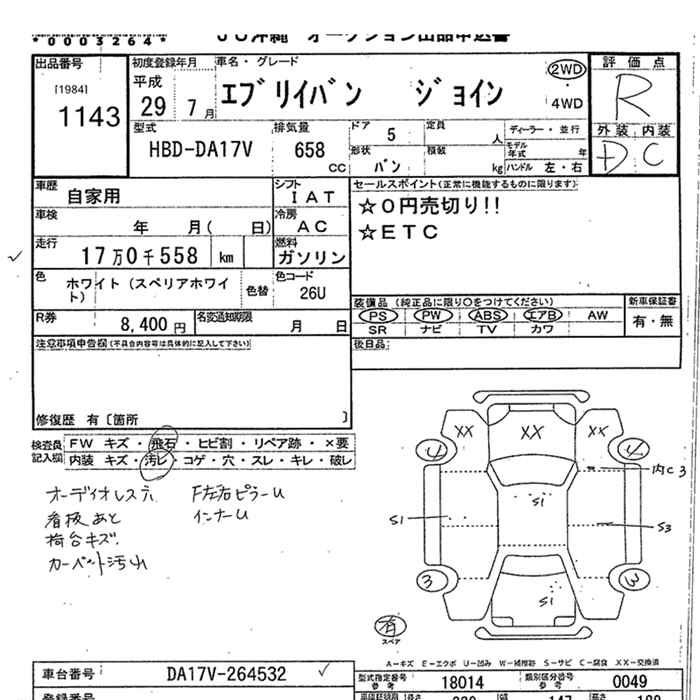 *0003264*
JU沖縄 オークション出品申込書
出品番号
[1984]
1143
初度登録年月
平成
29 7月
車名・グレード
エブリイバン ジョイン
2WD
・
4WD
評価点
R
外装 内装
D C
型式
HBD-DA17V
排気量
658
CC
ドア 5
形状 バン
定員 人
積載 kg
ディーラー・並行
モデル年式 年
ハンドル 左・右
車歴
自家用
シフト
IAT
車検
年 月( 日)
冷房
AC
走行
17万0千558 km
燃料
ガソリン
色
ホワイト(スペリアホワイト)
色替
色コード
26U
R券
8,400円
名変通知期限
月 日
セールスポイント(正常に機能するものに限ります)
☆0円売切り!!
☆ETC
装備品(純正品に限り○をつけてください)
PS PW ABS エアB AW
SR ナビ TV カワ
新車保証書
有・無
後日品:
注意事項申告欄(不具合内容等は具体的に記入して下さい)
修復歴 有〔箇所 〕
検査員記入欄
FW キズ・飛石・ヒビ割・リペア跡・×要
内装 キズ・汚レ・コゲ・穴・スレ・キレ・破レ
オーディオレス
看板あと
荷台キズ.
カーペット汚れ
F左右ピラーU
インナーU
XX XX XX
4 4
内C3
S1
S1
S3
3 3
S1
有
スペア
A-キズ E-エクボ U-凹み W-補修跡 S-サビ C-腐食 XX-交換済
車台番号 DA17V-264532
型式指定番号
参考
18014
類別区分番号
参考
0049
登録番号